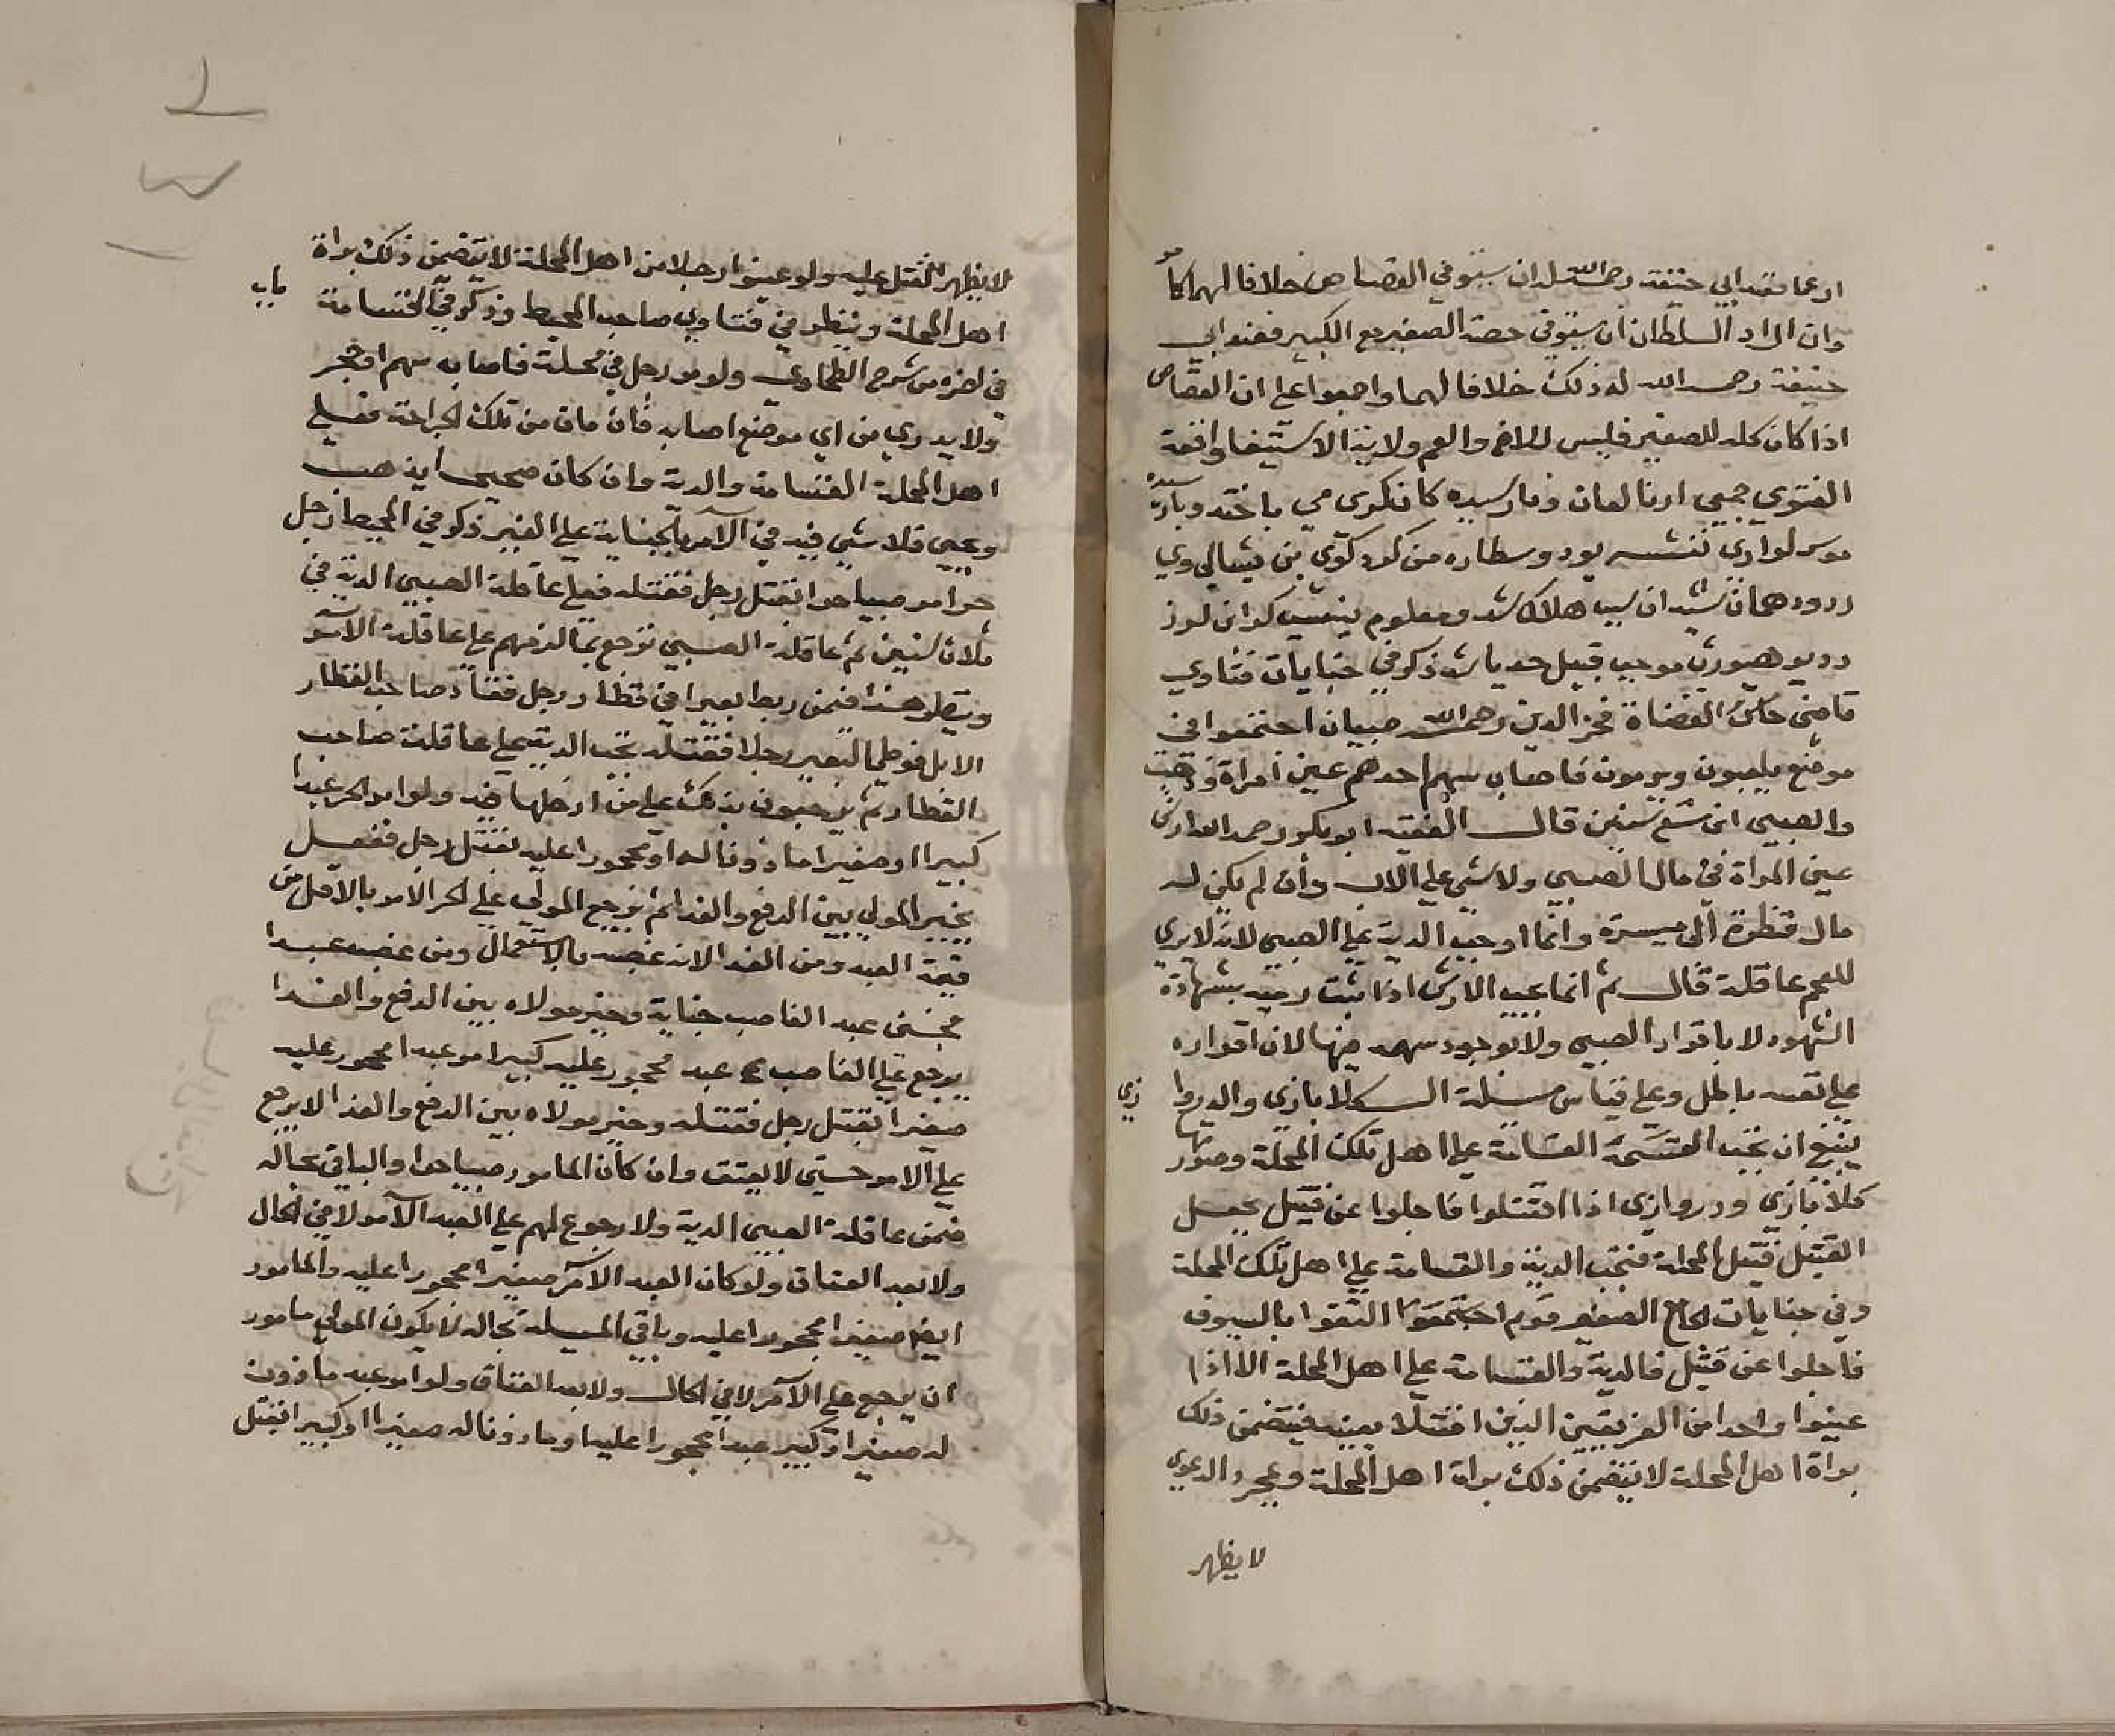 او عما فعند ابي حنيفة رحمه الله له ان يستوفي القصاص خلافا لهما كما مر
وان اراد السلطان ان يستوفي حصة الصغير مع الكبير فعند ابي
حنيفة رحمه الله له ذلك خلافا لهما واجمعوا على ان القصاص
اذا كان كله للصغير فليس للاخ والعم ولاية الاستيفا واقعة
الفتوى جمعي كانكرى مي باختند
من كرد
هلاك شد ومعلوم نيست كه اين
موجب حد باشد ذكر في جنايات فتاوي
قاضي خان القضاة فخر الدين رحمه الله صبيان اجتمعوا في
موضع يلعبون ويرمون فاصاب سهم احدهم عين امراة فذهبت
والصبي ابن تسع سنين قال الفقيه ابو بكر رحمه الله ارش
عين المراة في مال الصبي ولا شي على الاب وان لم يكن له
مال فنظرة الى ميسرة وانما اوجب الدية على الصبي لانه لا يرى
للعجم عاقلة قال ثم انما يجب الارش اذا ثبت رميه بشهادة
الشهود لا باقرار الصبي ولا بوجود سهمه فيها لان اقراره
على نفسه باطل وعلى قياس مسئلة الـ كلاباذي والدروازي
ينبغي ان تجب القسمة القسامة على اهل تلك المحلة وصورتها
كلاباذي ودروازي اذا اقتتلوا فاجلوا عن قتيل يجعل
القتيل قتيل المحلة فتجب الدية والقسامة على اهل تلك المحلة
وفي جنايات الجامع الصغير قوم اجتمعوا التقوا بالسيوف
فاجلوا عن قتيل فالدية والقسامة على اهل المحلة الا اذا
عينوا واحدا من الفريقين الذين اقتتلا بعينه فيتضمن ذلك
براة اهل المحلة لا يتضمن ذلك براة اهل المحلة وبمجرد الدعوى
لا يظهر
لا يظهر القتل عليه ولو عينوا رجلا من اهل المحلة لا يتضمن ذلك براة
اهل المحلة وينظر في فتاوي صاحب المحيط وذكر في القسامة باب
في اخره من شرح الطحاوي ولو مر رجل في محلة فاصابه سهم او حجر
ولا يدري من اي موضع اصابه فان مات من تلك الجراحة فعلى
اهل المحلة القسامة والدية وان كان صحيحا يذهب
ويجي فلا شي فيه في الآمر بالجناية على الغير ذكر في المحيط رجل
حر امر صبيا حرا بقتل رجل فقتله فعلى عاقلة الصبي الدية في
ثلاث سنين ثم عاقلة الصبي ترجع بما لزمهم على عاقلة الآمر
وينظر هذا فيمن ربط بعيرا في قطار رجل فقاد صاحب القطار
الابل فوطئ البعير رجلا فقتله تجب الدية على عاقلة صاحب
القطار ثم يرجعون بذلك على من ادخلها فيه ولو امر الحر عبدا
كبيرا او صغيرا ماذونا له او محجورا عليه بقتل رجل ففعل
يخير المولى بين الدفع والفدا ثم يرجع المولى على الحر الآمر بالاقل من
قيمة العبد ومن الفدا لانه غصبه بالاستعمال ومن غصب عبدا
فجنى عبد الغاصب جناية وخير مولاه بين الدفع والفدا
يرجع على الغاصب عبد محجور عليه كبيرا امر عبدا محجور عليه
صغيرا بقتل رجل فقتله وخير مولاه بين الدفع والفدا لا يرجع
على الآمر حتى لا يعتق وان كان المامور صبيا حرا والباقي بحاله
ضمن عاقلة الصبي الدية ولا رجوع لهم على العبد الآمر لا في الحال
ولا بعد العتاق ولو كان العبد الآمر صغيرا محجورا عليه والمامور
ايضا صغيرا محجورا عليه وباقي المسيلة بحاله لا يكون المولى مامور
ان يرجع على الآمر لا في الحال ولا بعد العتاق ولو امر عبد ماذون
له صغيرا او كبير عبدا محجورا عليه او ماذونا له صغيرا او كبيرا بقتل